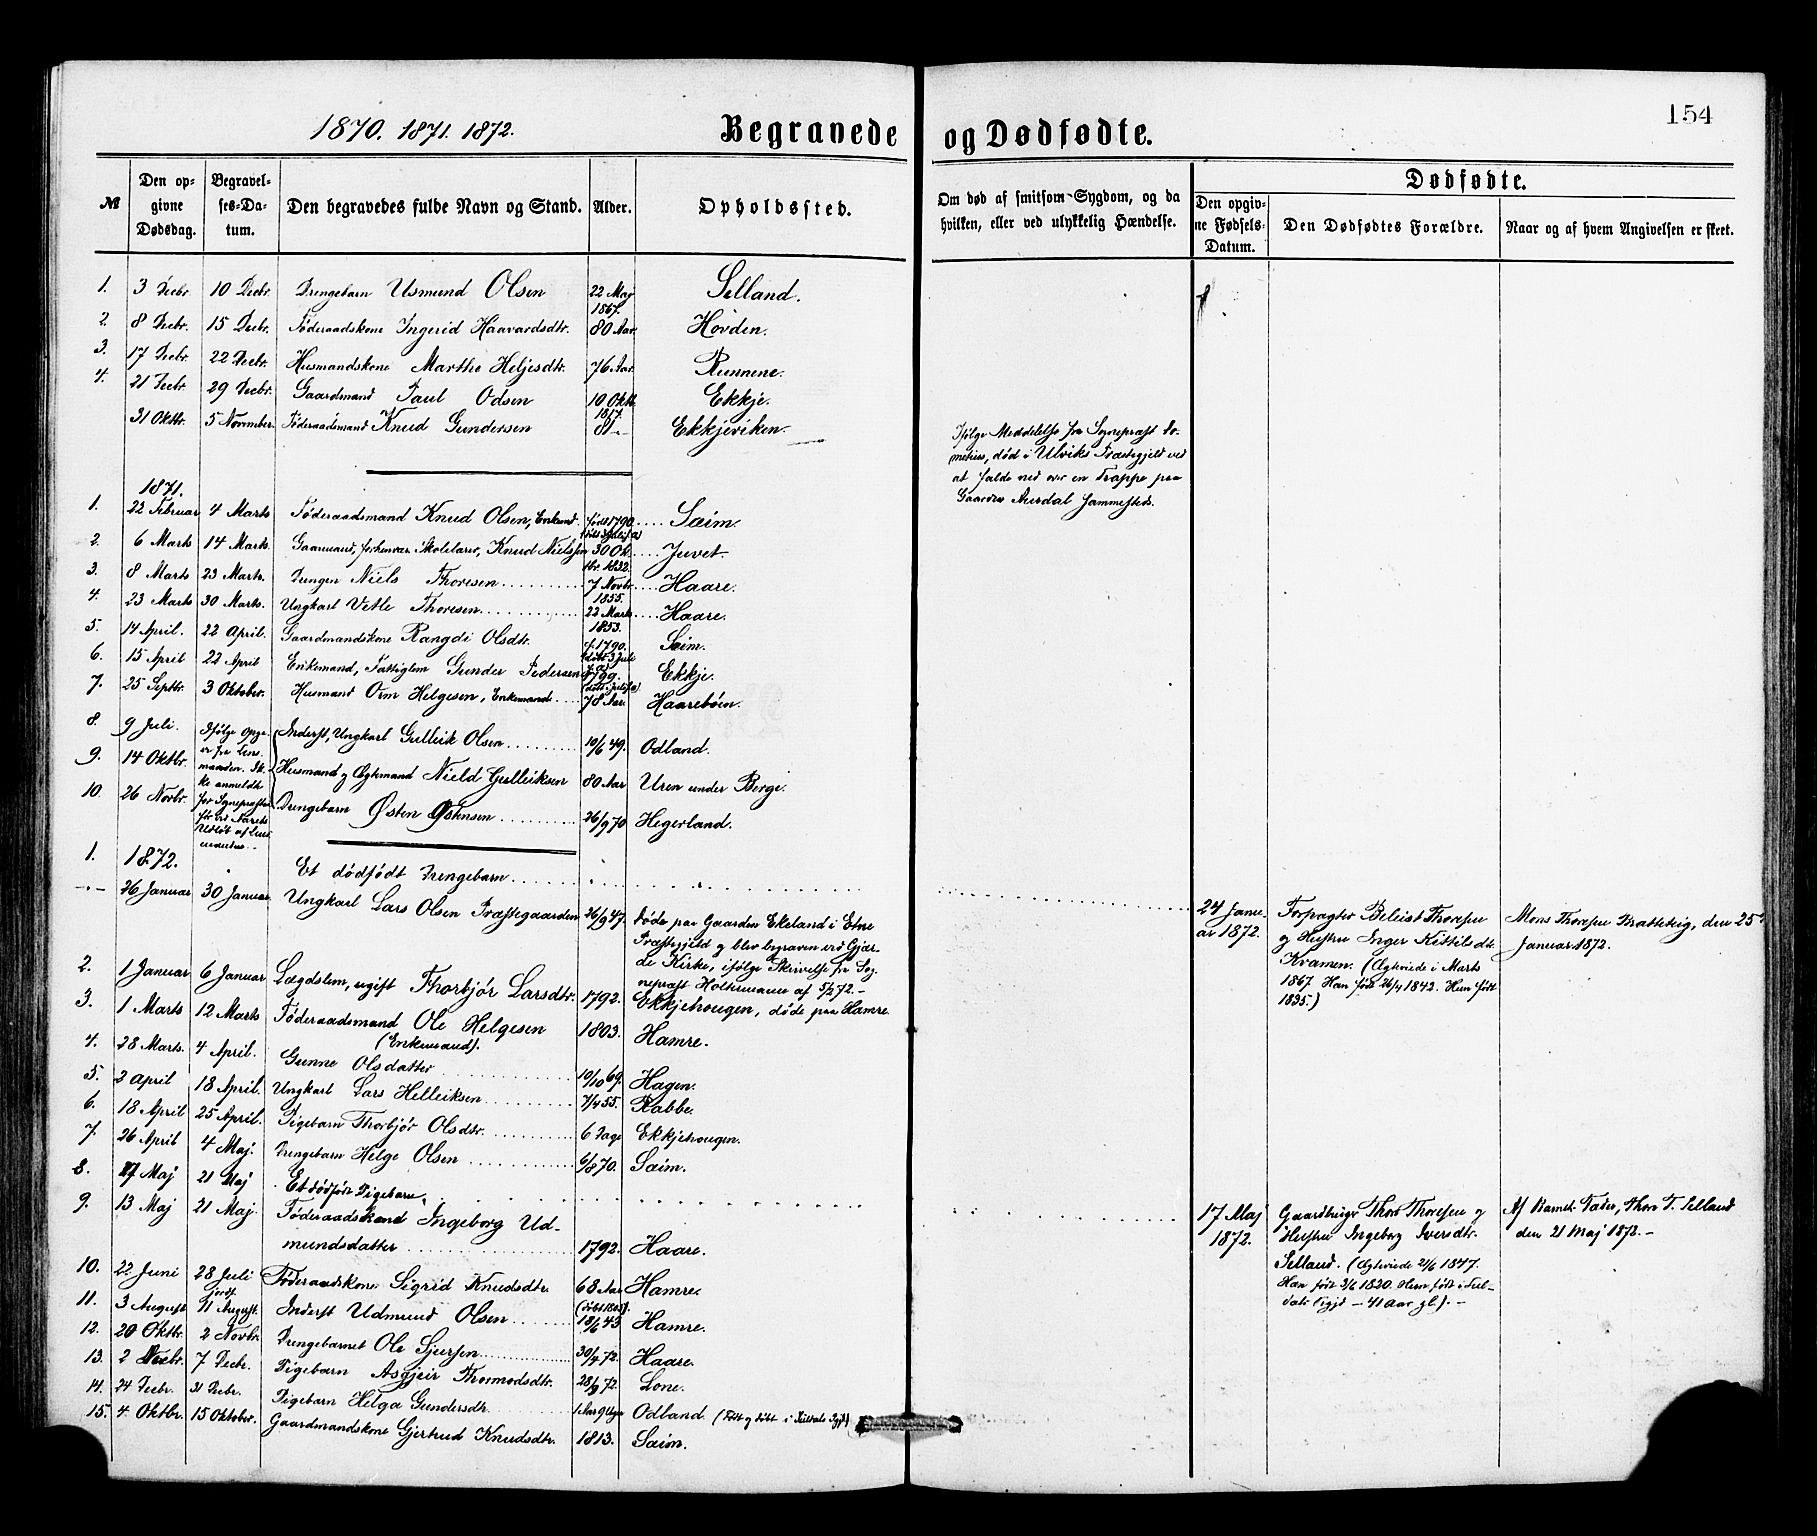 154
1870. 1871. 1872.
Begravede og Dødfødte.
№ Den opgivne Dødsdag. Begravelses-Datum. Den begravedes fulde Navn og Stand. Alder. Opholdssted. Om død af smitsom Sygdom, og da hvilken, eller ved ulykkelig Hændelse. Dødfødte. Den opgivne Fødsels-Datum. Den Dødfødtes Forældre. Naar og af hvem Angivelsen er skeet.
1. 3 Decbr. 10 Decbr. Drengebarn Usmund Olsen 22 Maj 1867. Selland.
2. 8 Decbr. 15 Decbr. Føderaadskone Ingerid Haavardsdtr. 80 Aar. Hovden.
3. 17 Decbr. 22 Decbr. Husmandskone Marthe Heljesdtr. 76 Aar. Runnene.
4. 21 Decbr. 29 Decbr. Gaardmand Paul Odsen 10 Oktb. 1817. Ekkje.
31 Oktbr. 5 November. Føderaadsmand Knud Gundersen 81 - Ekkjeviken.
Ifølge Meddelelse fra Sognepræst
død i Ulviks Præstegjeld ved
at falde ned over en Trappe paa
Gaarden sammesteds.
1871.
1. 22 Februar 4 Marts Føderaadsmand Knud Olsen, Enkemd. født 1790. Saim.
2. 6 Marts 14 Marts. Gaarmand, forhenvær. Skolelærer, Knud Nielssen 30 Oktbr. 1832. Juvet.
3. 8 Marts 23 Marts. Drengen Niels Thoresen 7 Novbr. 1855. Haare.
4. 23 Marts 30 Marts. Ungkarl Vetle Thoresen 22 Marts 1853. Haare.
5. 14 April. 22 April. Gaardmandskone Rangdi Olsdtr. f. 1790. Saim.
6. 15 April 22 April Enkemand, Fattiglem Gunder Pedersen 1799. Ekkje.
7. 25 Septbr. 3 Oktober. Husmand Orm Helgesen, Enkemand 78 Aar. Haarebøen.
8. 9 Juli. Inderst, Ungkarl Gulleik Olsen 10/6 49. Odland.
9. 14 Oktbr. Husmand og Ægtemand Nield Gulleiksen 80 Aar Uren under Berge.
10. 26 Novbr. Drengebarn Østen Østensen 26/9 70 Hegerland.
Ifølge Opgave fra Lensmanden. Ikke anmeldt for Sognepræsten før ved Aarets Udløb af
1872.
1. Et dødfødt Drengebarn
24 Januar 1872. Forpagter Beleist Thoresen og Hustru Inger Kittilsdt. Kvamen. (Ægteviede i Marts 1867. Han født 26/4 1842. Hun født 1835.) Mons Thoresen Brattebeig, den 25 Januar 1872.
- " - 26 Januar 30 Januar. Ungkarl Lars Olsen Præstegaarden 26/9 47. døde paa Gaarden Ekeland i Etne
Præstegjeld og blev begraven ved Gjærde Kirke, ifølge Skrivelse fra Sognepræst Holtermann af 5/2 72. -
2. 1 Januar 6 Januar Lægdslem, ugift Thorbjør Larsdtr. 1792. Ekkjehougen, døde paa Hamre.
3. 1 Marts 12 Marts Føderaadsmand Ole Helgesen (Enkemand). 1803. Hamre.
4. 28 Marts. 4 April. Gunne Olsdatter 10/10 69. Hagen.
5. 2 April 18 April. Ungkarl Lars Helleiksen 7/4 55. Rabbe.
6. 18 April 25 April. Pigebarn Thorbjør Olsdtr. 6 Dage Ekkjehougen.
7. 26 April 4 Maj. Drengebarn Helge Olsen 6/8 70. Saim.
8. 17 Maj 21 Maj Et dødfødt Pigebarn.
17 Maj 1872. Gaardbruger Thore Thoresen og Hustru Ingeborg Iversdtr. Selland. (Ægteviede 21/6 1847. Han født 3/6 1820. Hun født i Suldals Pgjd - 41 Aar gl.). - Af Barnets Fader, Thore T. Selland den 21 Maj 1872. -
9. 13 Maj 21 Maj. Føderaadskone Ingeborg Udmundsdatter 1792. Haare.
10. 22 Juni 28 Juli Føderaadskone Sigrid Knudsdtr. 68 Aar (døbt 1803). Hamre.
11. 3 August 11 August. Inderst Udmund Olsen 18/6 43 Hamre.
12. 20 Oktbr. 2 Novbr. Drengebarnet Ole Sjursen 30/4 72. Haare.
13. 2 Decbr. 7 Decbr. Pigebarn Asgjeir Thormodsdtr. 28/9 72. Lone.
14. 24 Decbr. 31 Decbr. Pigebarn Helga Gundersdtr. 1 Aar 9 Uger Odland. (Født og døbt i Suldals Pgjd.)
15. 4 Oktbr. 15 Oktober. Gaardmandskone Gjertrud Knudsdtr. 1813. Saim.